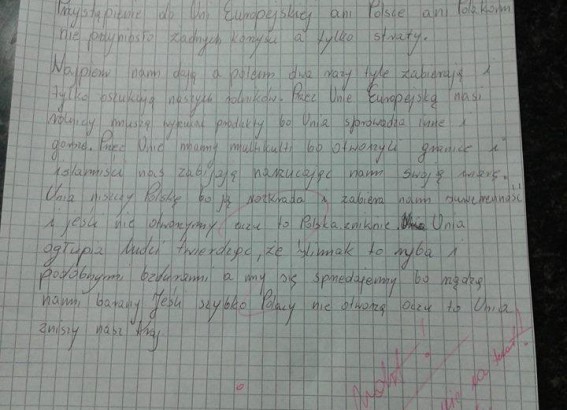 Przystąpienie do Unii Europejskiej ani Polsce ani Polakom
nie przyniosło żadnych korzyści a tylko straty.
Najpierw nam dają a potem dwa razy tyle zabierają i
tylko oszukują naszych rolników. Przez Unie Europejską nasi
rolnicy muszą wyrzucać produkty bo Unia sprowadza inne i
gorsze. Przez Unie mamy multikulti bo otworzyli granice i
islamiści nas zabijają narzucając nam swoją wiarę.
Unia niszczy Polskę bo ją rozkrada i zabiera nam suwerenność
i jeśli nie otworzymy oczu to Polska zniknie. Unia
ogłupia ludzi twierdząc, że ślimak to ryba i
podobnymi bzdurami a my się sprzedajemy bo rządzą
nami barany Jeśli szybko Polacy nie otworzą oczu to Unia
zniszy nasz kraj
nie na temat!